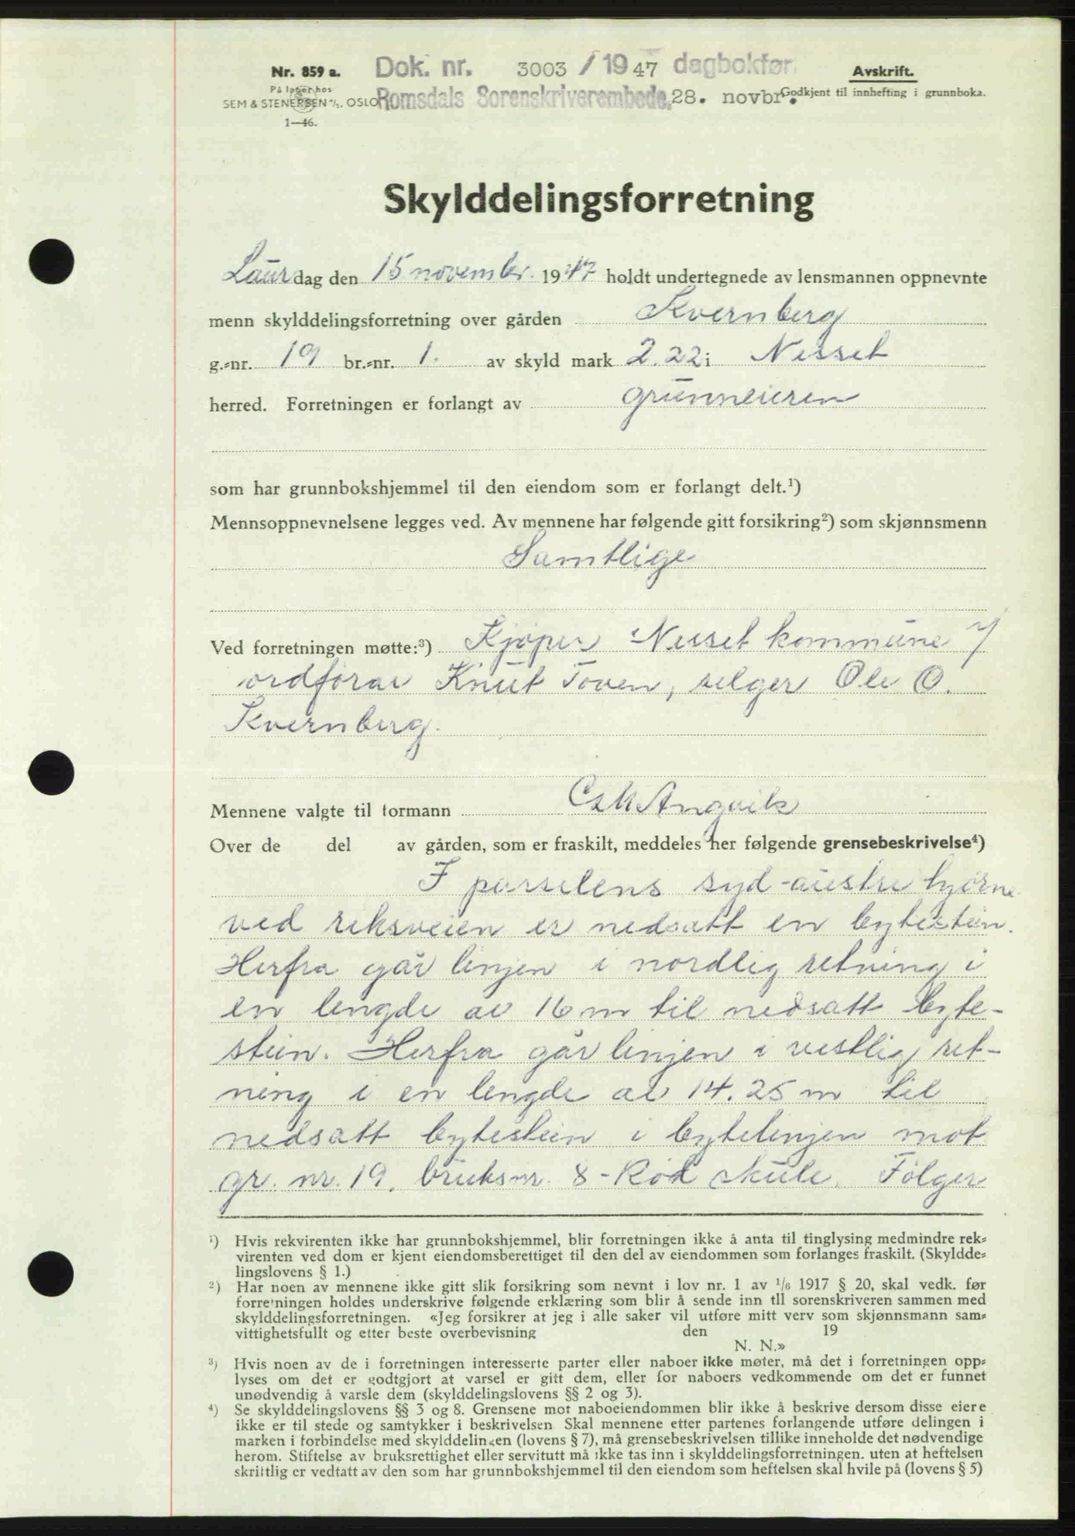 Nr. 859 a.
På lager hos
SEM & STENERSEN A/S. OSLO
1—46.
Dok. nr. 3003 / 1947 dagbokfør.
Romsdals Sorenskriverembede, 28. novbr.
Avskrift.
Godkjent til innhefting i grunnboka.
Skylddelingsforretning
Laurdag den 15 november. 1947 holdt undertegnede av lensmannen oppnevnte
menn skylddelingsforretning over gården Kvernberg
g.-nr. 19 br.-nr. 1. av skyld mark 2.22 i Nesset
herred. Forretningen er forlangt av grunneieren
som har grunnbokshjemmel til den eiendom som er forlangt delt.¹)
Mennsoppnevnelsene legges ved. Av mennene har følgende gitt forsikring²) som skjønnsmenn
Samtlige
Ved forretningen møtte:³) Kjøper Nesset kommune v/
ordførar Knut Toven, selger Ole O.
Kvernberg.
Mennene valgte til formann Angvik
Over de del av gården, som er fraskilt, meddeles her følgende grensebeskrivelse⁴)
I parselens syd-austre hjørne
ved riksveien er nedsatt en bytestein.
Herfra går linjen i nordlig retning i
en lengde av 16 m til nedsatt byte-
stein. Herfra går linjen i vestlig ret-
ning i en lengde av 14.25 m til
nedsatt bytestein i bytelinjen mot
gr. nr. 19, bruksnr. 8 - Rød skule. Følger
¹) Hvis rekvirenten ikke har grunnbokshjemmel, blir forretningen ikke å anta til tinglysing medmindre rek-
virenten ved dom er kjent eiendomsberettiget til den del av eiendommen som forlanges fraskilt. (Skyldde-
lingslovens § 1.)
²) Har noen av mennene ikke gitt slik forsikring som nevnt i lov nr. 1 av 1/6 1917 § 20, skal vedk. før
forretningen holdes underskrive følgende erklæring som blir å sende inn til sorenskriveren sammen med
skylddelingsforretningen. «Jeg forsikrer at jeg i alle saker vil utføre mitt verv som skjønnsmann sam-
vittighetsfullt og etter beste overbevisning den 19
N. N.»
³) Hvis noen av de i forretningen interesserte parter eller naboer ikke møter, må det i forretningen opp-
lyses om det er godtgjort at varsel er gitt dem, eller for naboers vedkommende om det er funnet
unødvendig å varsle dem (skylddelingslovens §§ 2 og 3).
⁴) Se skylddelingslovens §§ 3 og 8. Grensene mot naboeiendommen blir ikke å beskrive dersom disse eiere
ikke er til stede og samtykker i beskrivelsen Skal mennene etter partenes forlangende utføre delingen i
marken i forbindelse med skylddelingen (lovens § 7), må grensebeskrivelsen tillike inneholde det nødvendige
herom. Stiftelse av bruksrettighet eller servitutt må ikke tas inn i skylddelingsforretningen. uten at heftelsen
skriftlig er vedtatt av den som har grunnbokshjemmel til den eiendom som heftelsen skal hvile på (lovens § 5)